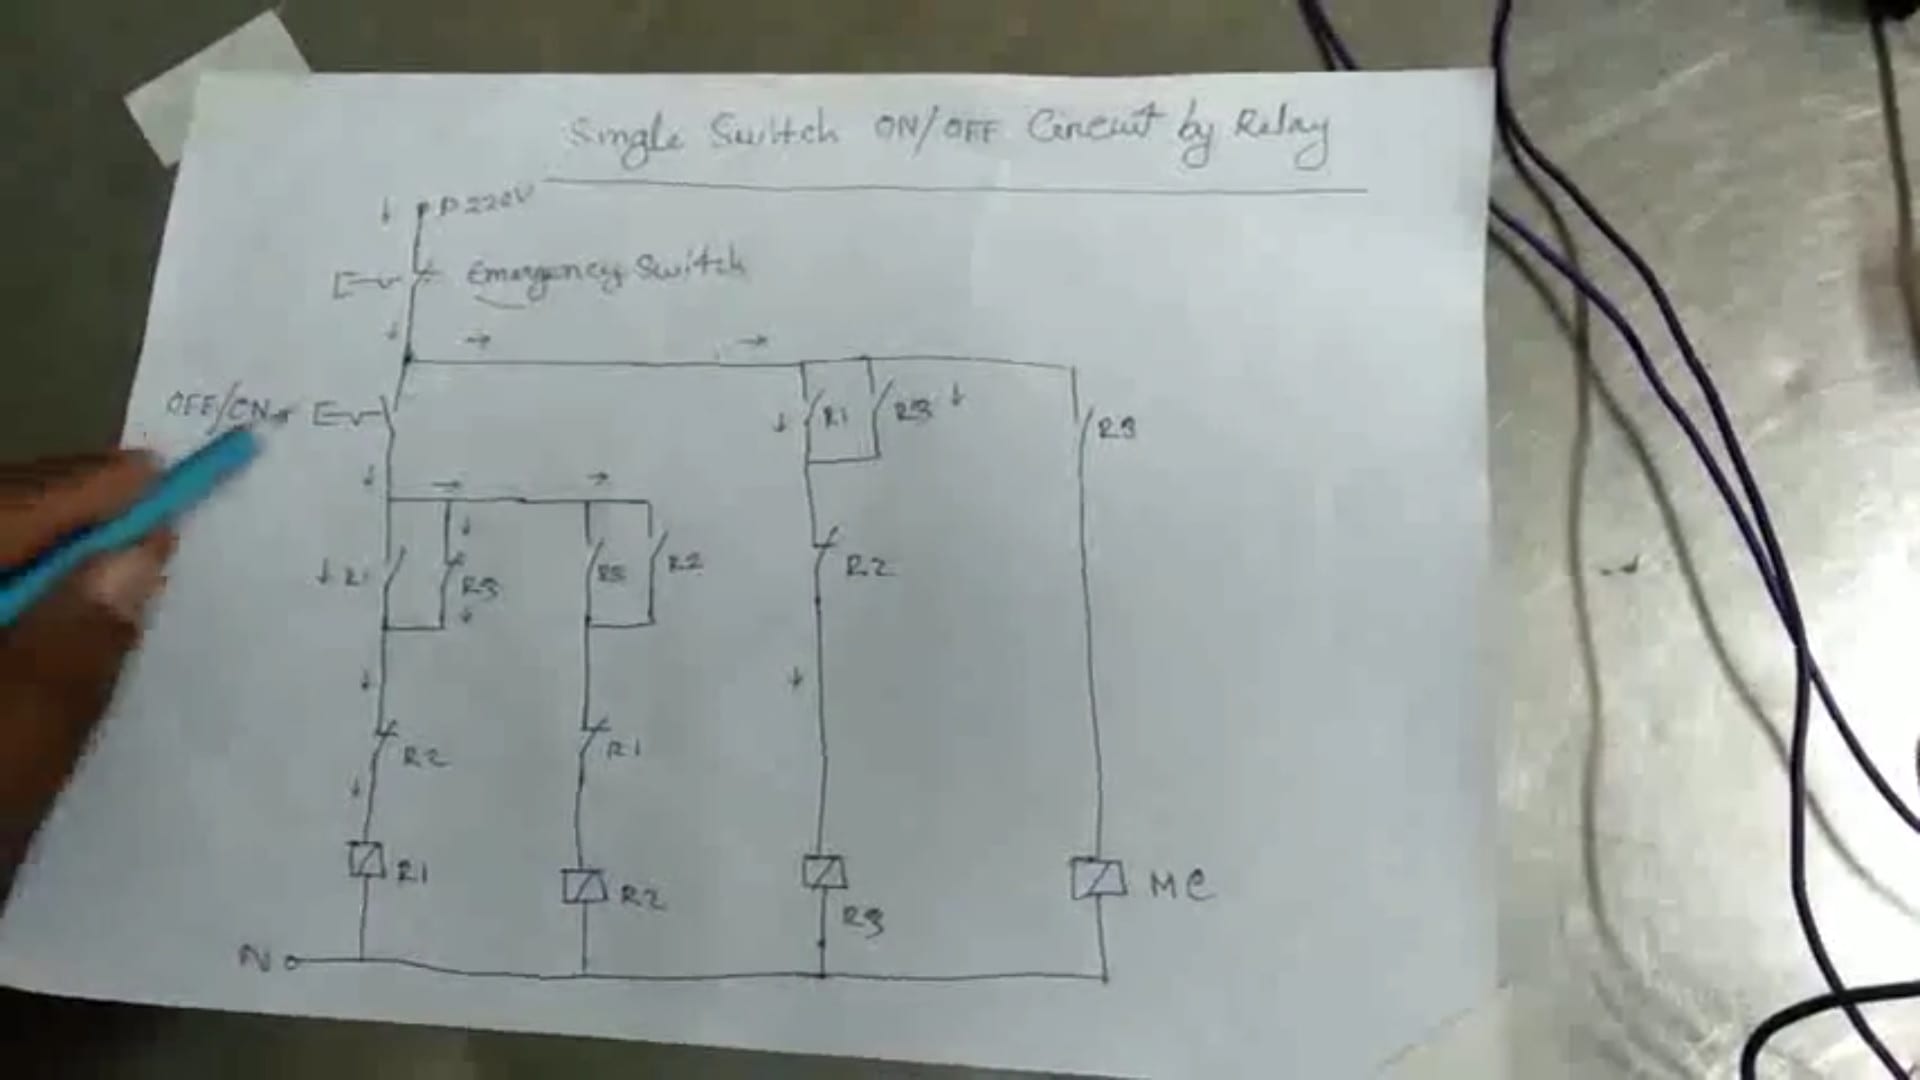 Single Switch ON/OFF Circuit by Relay
P 220V
Emergency Switch
OFF/ON
R1
R3
R3
R1
R3
R3
R2
R2
R2
R1
R1
R2
R3
MC
N